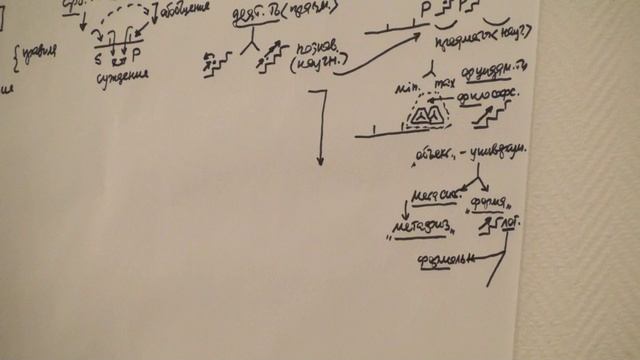 обобщение
{ правила
S P
суждение
деят. ть (предм.)
познав.
(научн.)
P
предметы (науч)
min. max
фундам. ть
философс.
"объект" - универсум.
"форма"
"метафиз"
лог.
формальн